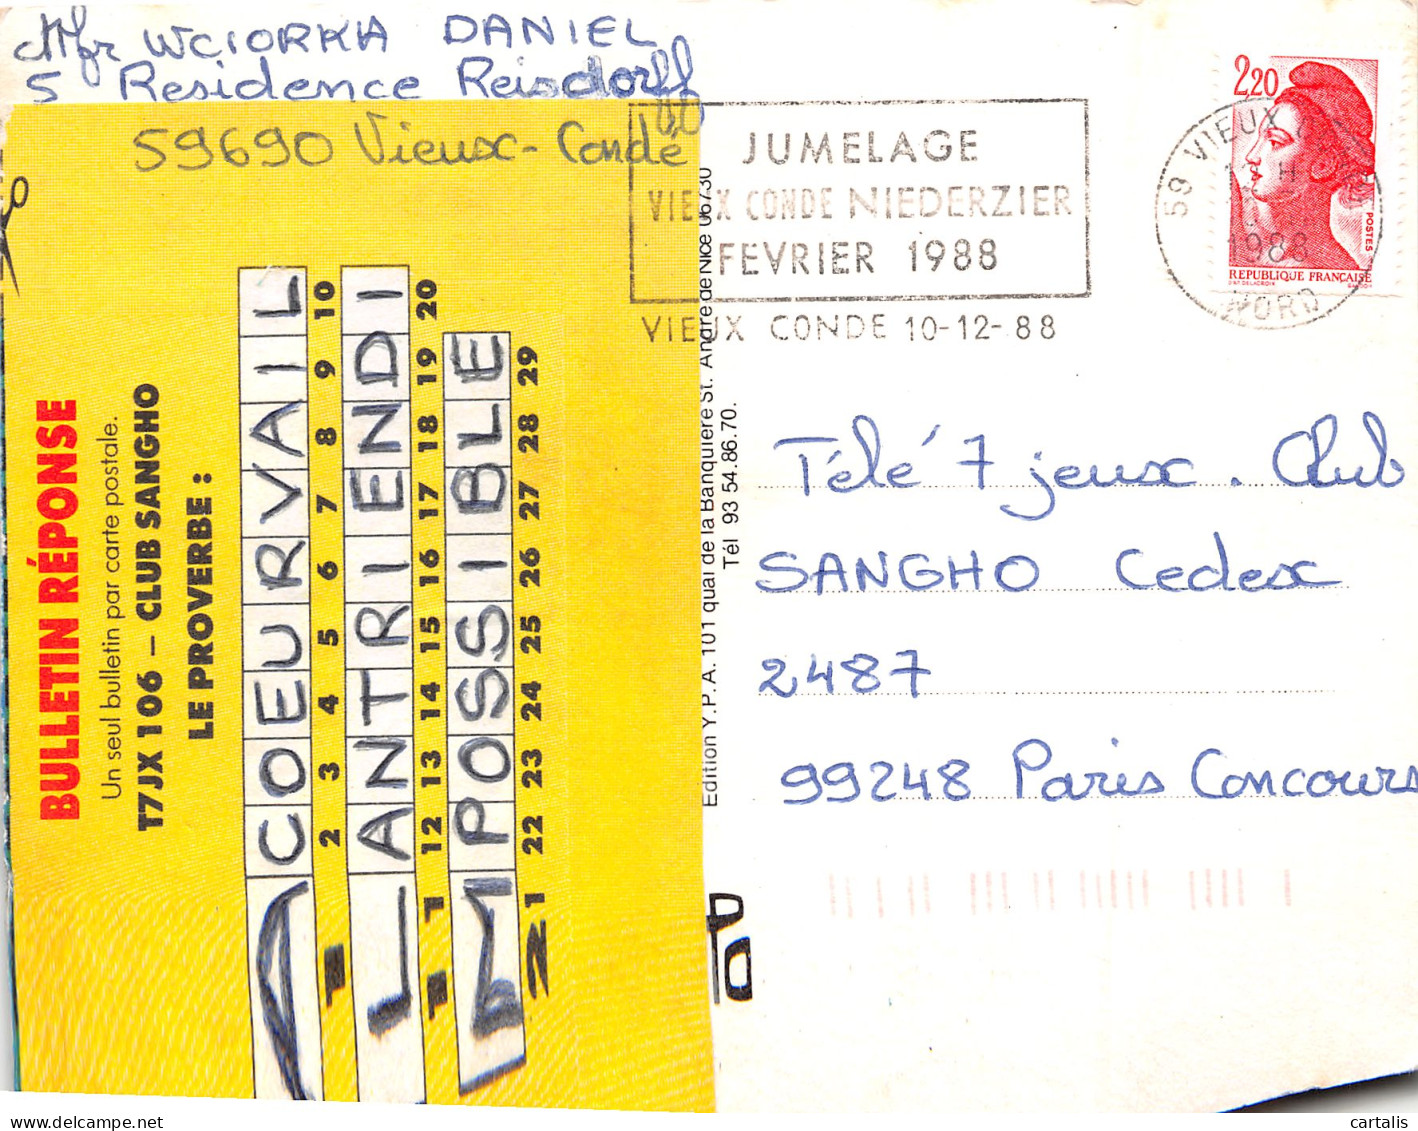 Mr WCIORKA DANIEL
5 Residence Reisdorff
59690 Vieux-Condé
BULLETIN RÉPONSE
Un seul bulletin par carte postale.
T7JX 106 – CLUB SANGHO
LE PROVERBE :
ACOEURVAIL
1 2 3 4 5 6 7 8 9 10
LANTRIENDI
11 12 13 14 15 16 17 18 19 20
MPOSSIBLE
21 22 23 24 25 26 27 28 29
Edition Y.P.A. 101 quai de la Banquiere St. André de Nice 06730
Tél 93 54.86.70.
JUMELAGE
VIEUX CONDE NIEDERZIER
FEVRIER 1988
VIEUX CONDE 10-12-88
59 VIEUX
1988
NORD
2,20
POSTES
REPUBLIQUE FRANÇAISE
Télé 7 jeux . Club
SANGHO Cedex
2487
99248 Paris Concours
cartalis